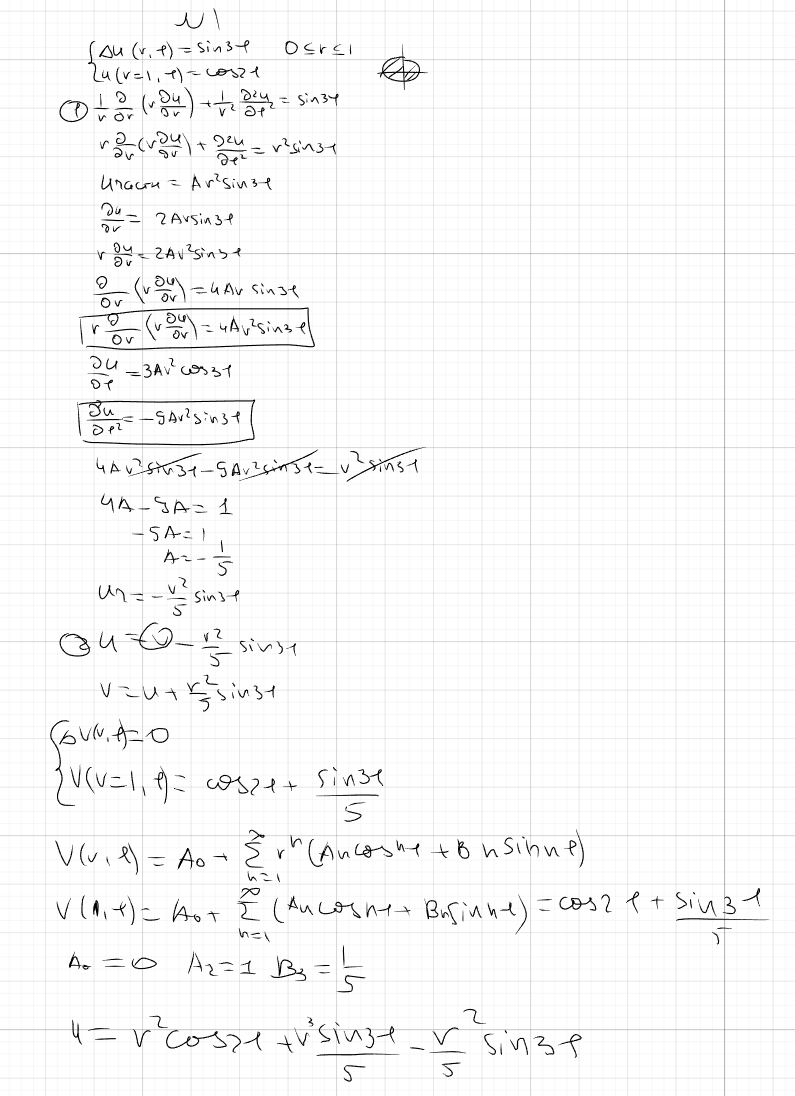 N1
{Δu(r,φ) = sin3φ 0 ≤ r ≤ 1
{u(r=1,φ) = cos2φ
① 1/r ∂/∂r (r ∂u/∂r) + 1/r² ∂²u/∂φ² = sin3φ
r ∂/∂r (r ∂u/∂r) + ∂²u/∂φ² = r² sin3φ
uчастн = Ar² sin3φ
∂u/∂r = 2Ar sin3φ
r ∂u/∂r = 2Ar² sin3φ
∂/∂r (r ∂u/∂r) = 4Ar sin3φ
r ∂/∂r (r ∂u/∂r) = 4Ar² sin3φ
∂u/∂φ = 3Ar² cos3φ
∂²u/∂φ² = -9Ar² sin3φ
4Ar² sin3φ - 9Ar² sin3φ = r² sin3φ
4A - 9A = 1
-5A = 1
A = -1/5
uч = -r²/5 sin3φ
② u = v - r²/5 sin3φ
v = u + r²/5 sin3φ
{Δv(r,φ) = 0
{v(r=1,φ) = cos2φ + sin3φ/5
V(r,φ) = A₀ + ∑_{n=1}^{∞} rⁿ (An cos nφ + Bn sin nφ)
V(1,φ) = A₀ + ∑_{n=1}^{∞} (An cos nφ + Bn sin nφ) = cos2φ + sin3φ/5
A₀ = 0 A₂ = 1 B₃ = 1/5
u = r² cos2φ + r³ sin3φ/5 - r²/5 sin3φ